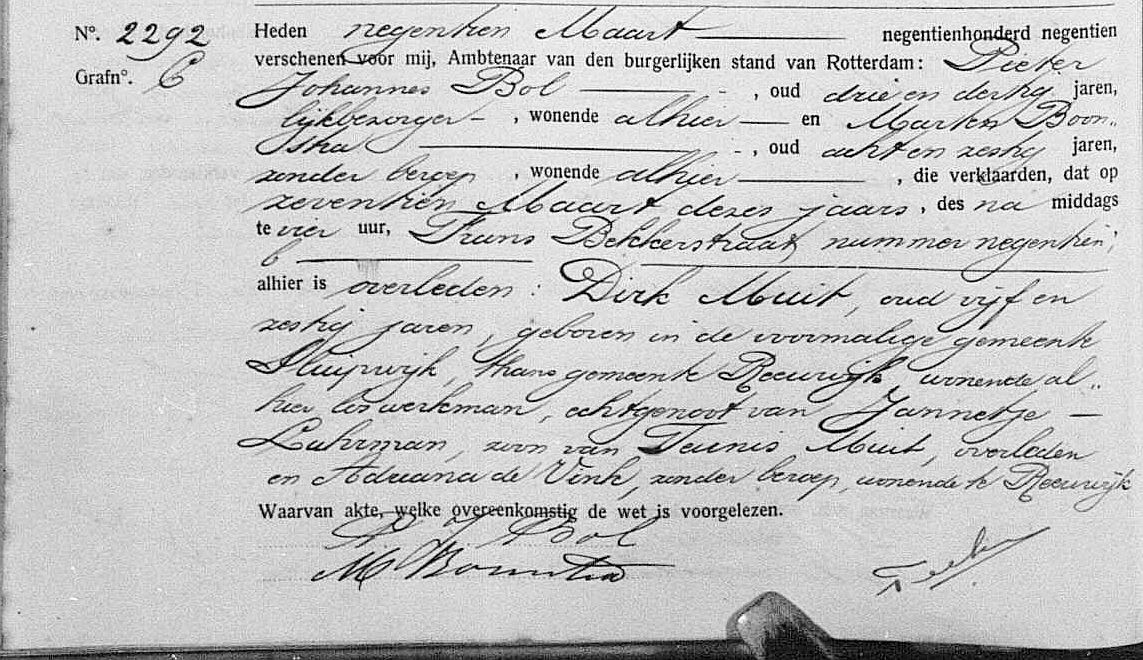 No. 2292 Heden negentien Maart negentienhonderd negentien
Grafno. C verschenen voor mij, Ambtenaar van den burgerlijken stand van Rotterdam: Pieter
Johannes Bol , oud drie en dertig jaren,
lijkbezorger , wonende alhier en Marten Boon„
stra , oud acht en zestig jaren,
zonder beroep , wonende alhier , die verklaarden, dat op
zeventien Maart dezes jaars, des na middags
te vier uur, Frans Bekkerstraat nummer negentien
b
alhier is overleden: Dirk Muit, oud vijf en
zestig jaren, geboren in de voormalige gemeente
Sluipwijk, thans gemeente Reeuwijk, wonende al„
hier los werkman, echtgenoot van Jannetje
Luhrman, zoon van Teunis Muit, overleden
en Adriana de Vink, zonder beroep, wonende te Reeuwijk
Waarvan akte, welke overeenkomstig de wet is voorgelezen.
P J Bol
M Boonstra